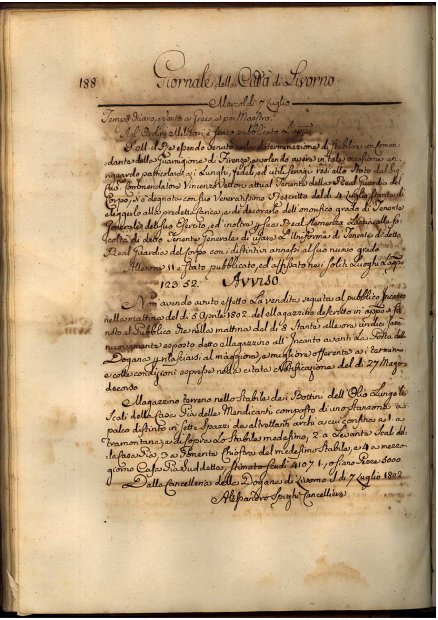 188 Giornale della Città di Livorno
Mercoldì 7 Luglio
Tempo chiaro, e vento a
Agl'Ordini Militari è stato pubblicato
Dell il Re essendo venuto nella determinazione di stabilire un Comen
dante della Guarnigione di Firenze, e volendo avere in tale occasione un
riguardo particolare ai lunghi, fedeli, ed utili servizi resi allo Stato dal Sig
Cav. Commendatore Vincenzo attual Tenente della Real Guardia del
Corpo, si è degnata con suo Veneratissimo Rescritto del dì 4 Luglio stante di
eleggerlo alla predetta carica, e di decorarlo dell'onorifico grado di Tenente
Generale del suo Servizio, ed inoltre la fa
coltà di detto Tenente Generale di usare l'Uniforme di Tenente di detta
Real Guardia del Corpo con i distintivi annessi al suo nuovo grado
Alle ore 11 è stato pubblicato, ed affissato nei soliti luoghi
123.52. Avviso
Non avendo avuto effetto la vendita seguita al pubblico Incanto
nella mattina del dì 5 Aprile 1802 del Magazzino descritto in appo si fa
noto al Pubblico che nella mattina del dì 8 stante alle ore undici sarà
nuovamente esposto detto Magazzino all'Incanto avanti la Porta della
Dogana, e rilasciarsi al maggiore, e migliore offerente ai termini
e colle condizioni espresse nella citata Notificazione del dì 27 Maggio
decorso
Magazzino terreno nello Stabile dei Bottini dell'Olio lungo le
Scali della Casa Pia delle Mendicanti composto di uno stanzone a
palco distinto in sette spazi da altrettanti archi a cui confina a 1.
Tramontana, e di sopra lo Stabile medesimo, 2 a Levante Scali del
la Casa Pia, 3 a Ponente Chiostra del medesimo Stabile, e 4 a mezzo
giorno Casa Pia suddetta, stimato scudi 4107 1, o siano Pezze 5000.
Dalla Cancelleria della Dogana di Livorno li dì 7 Luglio 1802
Alessandro Cancelliere